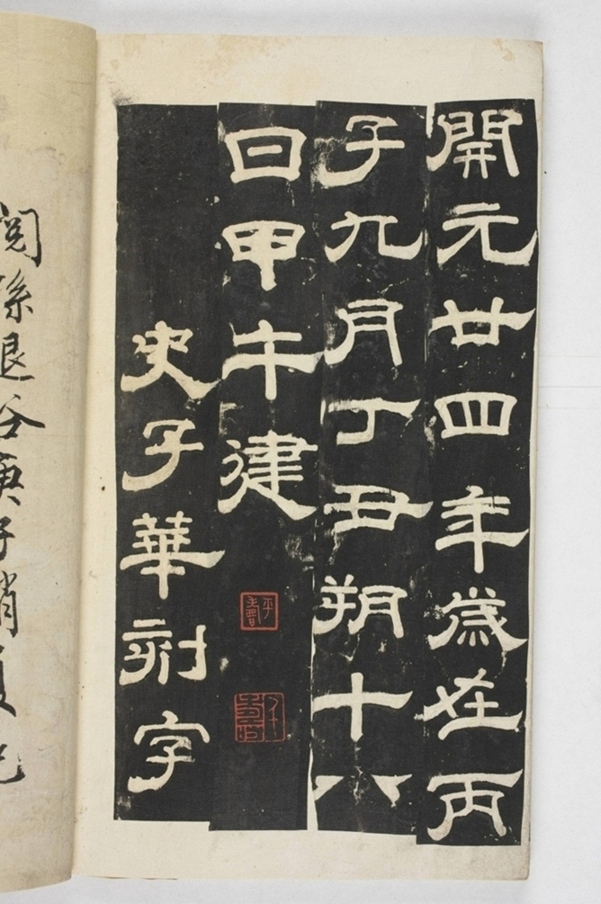 開元廿四年歲在丙
子九月丁丑朔十八
日甲午建
史子華刻字
閱孫退谷庚子消夏記